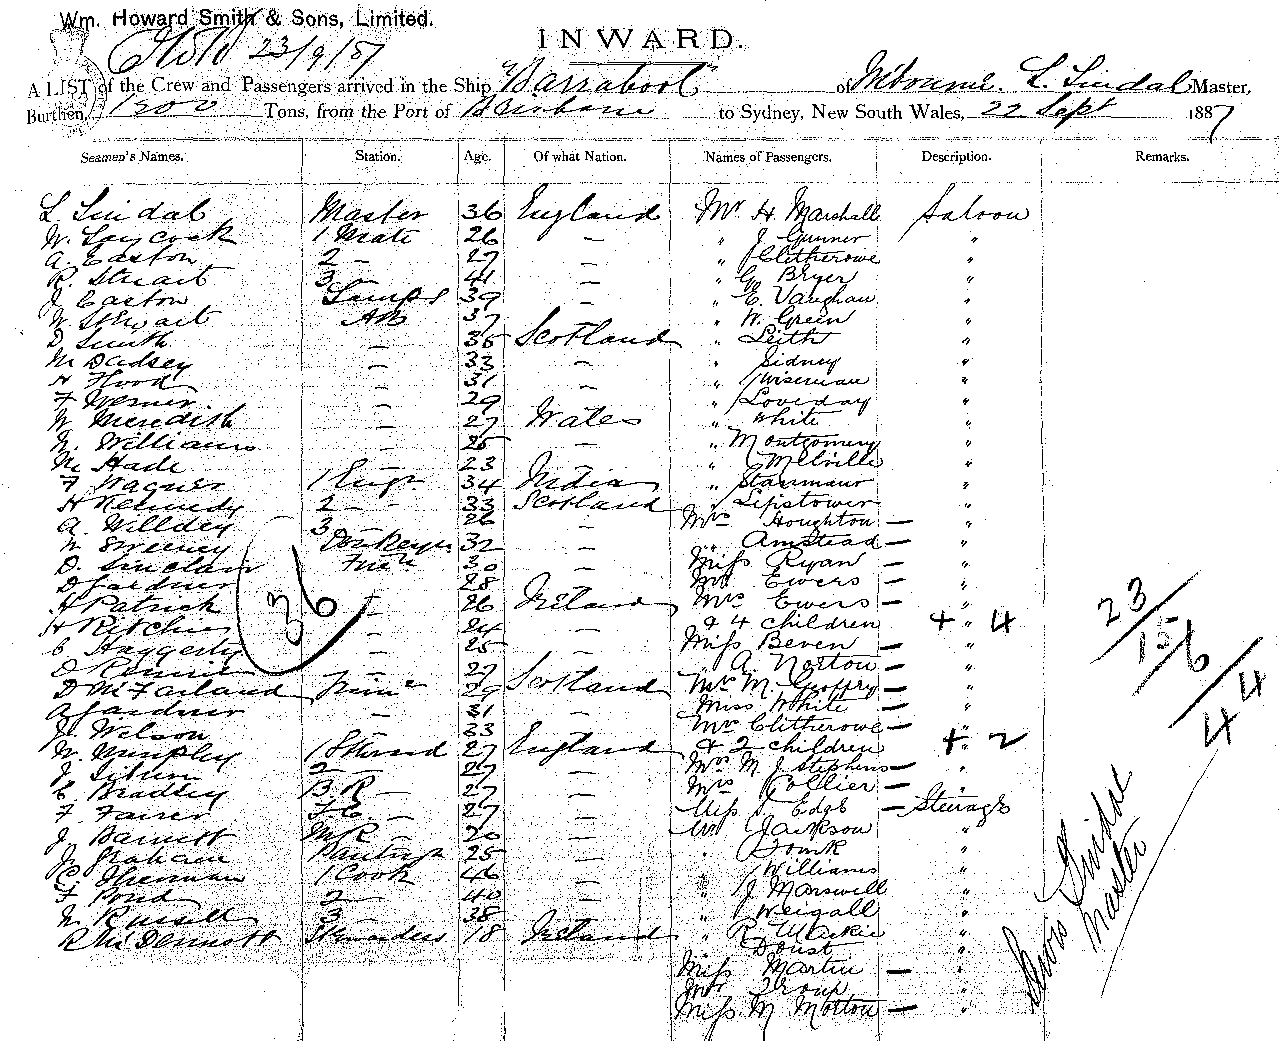 Wm. Howard Smith & Sons, Limited.
23/9/87
INWARD.
A LIST of the Crew and Passengers arrived in the Ship "Barrabool" of Melbourne. L. Lindal Master,
Burthen, 1200 Tons, from the Port of Brisbane to Sydney, New South Wales, 22 Sept 1887
Seamen's Names. Station. Age. Of what Nation. Names of Passengers. Description. Remarks.
L Lindal Master 36 England Mr H. Marshall Saloon
W. Laycock 1 Mate 26 — " J. Gunner "
A. Easton 2 — 27 — " Clitherowe "
R. Stuart 3 — 41 — " G Bryer "
J Easton Lamps 39 — " C. Vaughan "
W Stewart AB 37 — " W. Green "
D Smith — 35 Scotland " Leith "
M Dadsey — 33 — " Sidney "
H Hood — 31 — " Wiseman "
F Werner — 29 — " Loveday "
W Meredith — 27 Wales " White "
W. Williams — 25 — " Montgomery "
M. Hade — 23 — " Melville "
F Wagner 1 Engr 34 India " Stanmaur "
H Kennedy 2 — 33 Scotland " Lipstower "
A. Willdey 3 26 — Mrs Houghton — "
W Sweeney Donkeyn 32 — " Amstead — "
D. Sinclair Firen 30 — Miss Ryan — "
D Gardner 28 — Mr Ewers — "
H Patrick — 26 Ireland Mrs Ewers — "
H Ritchie — 24 — & 4 children + " 4
C Haggerty — 25 — Miss Beven — "
D Rennie — 27 " A. Norton — "
D McFarland Trimr 29 Scotland Mrs M. Geoffry — "
A Gardner — 31 — Miss White — "
J. Wilson — 33 — Mrs Clitherowe — "
W. Murphy 1 Steward 27 England & 2 children + " 2
J. 2 — 27 — Mrs M J Stephens — "
C Bradley B R — 27 — Mrs Collier — "
F. Fairer F C — 27 — Miss S. Edge — Steerage
J Barnett M R — 20 — Mr Jackson "
J. Graham Pantry 25 — "
C Sherman 1 Cook 46 — " Williams "
F Pond 2 — 40 — " J Marswell "
W Russell 3 — 38 — " Weigall "
R McDermott 18 Ireland " R. Mackie "
Doust "
Miss Martin — "
Mr Troup "
Miss M Morton — "
36
23/
15/6
44
Louis Lindal
Master